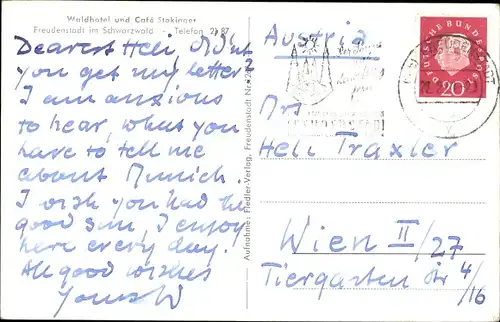 Waldhotel und Café Stokinger
Freudenstadt im Schwarzwald - Telefon 2187
Dearest Heli, Didn't
you get my letter?
I am anxious
to hear, what you
have to tell me
about Munich.
I wish you had the
good sun, I enjoy
here every day.
All good wishes
Yours
Aufnahme: Fiedler-Verlag, Freudenstadt
DEUTSCHE BUNDESPOST
20
FREUDENSTADT
Austria
Mrs
Heli Traxler
Wien II/27
Tiergarten Str 4/16